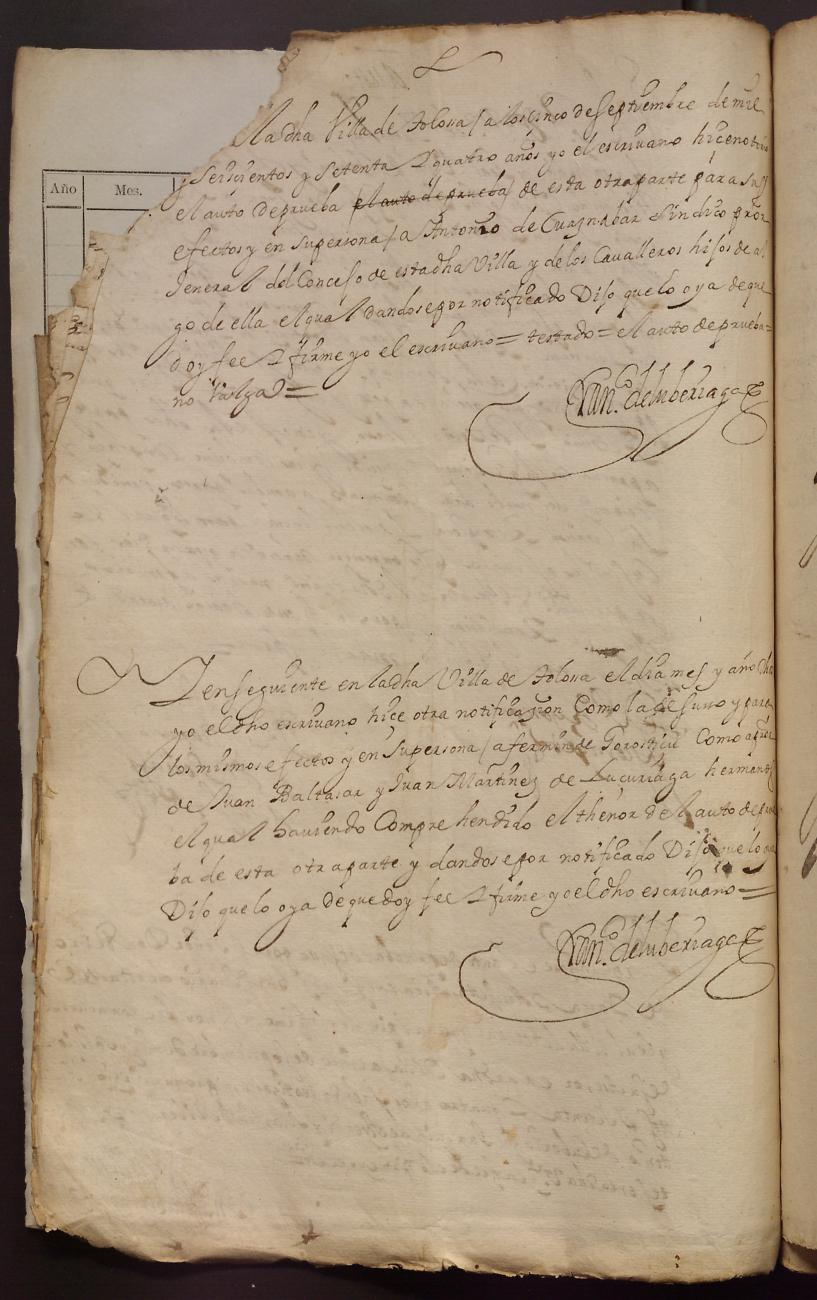 Año Mes.
la dha Villa de Tolosa / a los çinco de Septiembre de mil
seisçientos y setenta y quatro años yo el escriuano hiçe
el auto de prueba el auto de prueba de esta otra parte para sus
efectos y en su persona / a Antonio de Sindico pror
Jeneral del Conçejo de esta dha Villa y de los Cavalleros hijos de al
go de ella el qual dandose por notificado Dijo que lo oya de que
doy fee y firme yo el escriuano = testado = el auto de prueba =
no Valga =
Franco. de Umberiaga
En seguiente en la dha Villa de Tolosa el dia mes y año dho
yo el dho escriuano hiçe otra notificaçion Como la de suso y para
los mismos efectos y en su persona / a fermin de Gorostidi Como
de Juan Baltasar y Juan Martinez de Lucuriaga herman
el qual hauiendo Comprehendido el thenor del auto de prue
ba de esta otra parte y dandose por notificado Dijo que lo oya
Dijo que lo oya de que doy fee y firme yo el dho escriuano =
Franco. de Umberiaga